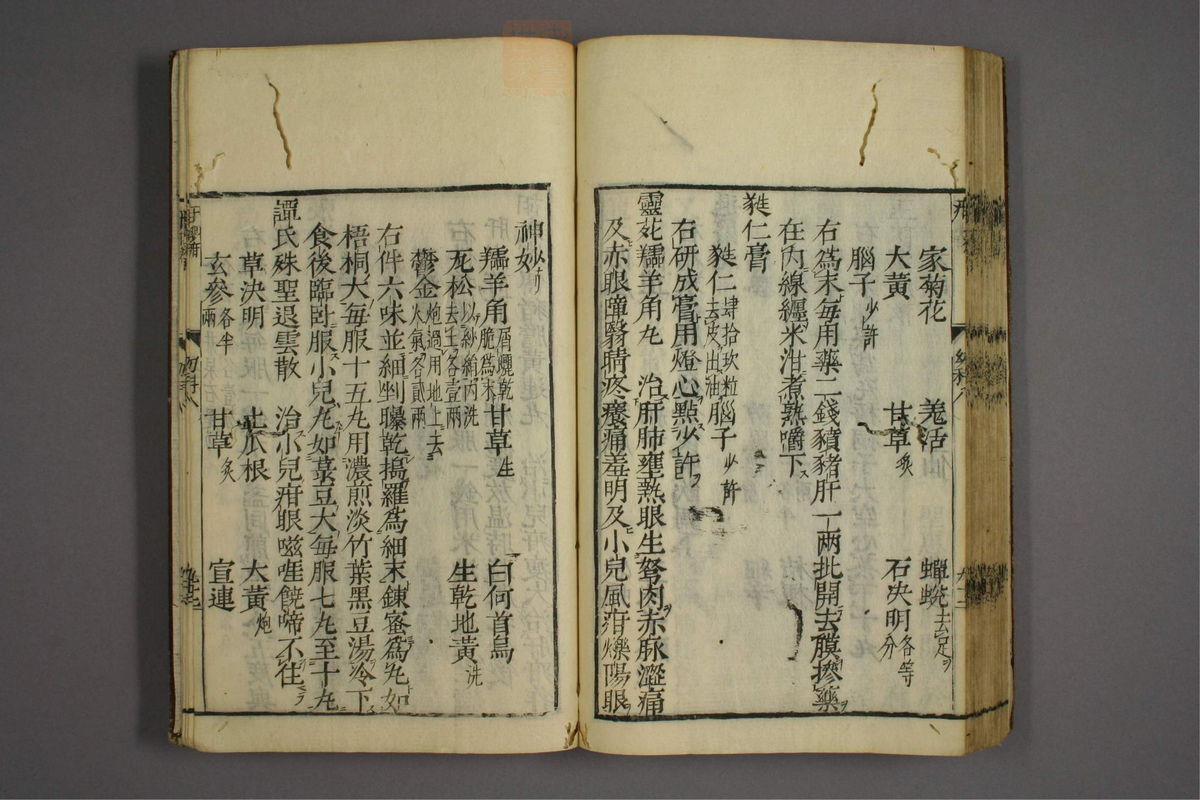 家菊花 羌活 蟬蛻去土足
大黄 甘草炙 石决明各等分
腦子少許
右為末每用藥二錢豬肝一兩批開去膜摻藥
在内線纒米泔煮熟嚼下
蕤仁膏
蕤仁肆拾玖粒去皮出油 腦子少許
右研成膏用燈心點少許
靈苑羺羊角丸 治肝肺壅熱眼生胬肉赤脉澀痛
及赤眼障翳睛疼癢痛羞明及小兒風疳爍陽眼
神妙
羺羊角屑曬乾脆為末 甘草生 白何首烏
死松以紗絹内洗去土各壹兩 生乾地黄洗
鬱金炮過用地上去火氣各貳兩
右件六味並細剉曝乾搗羅為細末錬蜜為丸如
梧桐大每服十五丸用濃煎淡竹葉黒豆湯冷下
食後臨卧服小兒丸如菉豆大每服七丸至十丸
譚氏殊聖退雲散 治小兒疳眼嗞啀饒啼不住
草决明 土瓜根 大黄炮
玄參各半兩 甘草炙 宣連
幼科八